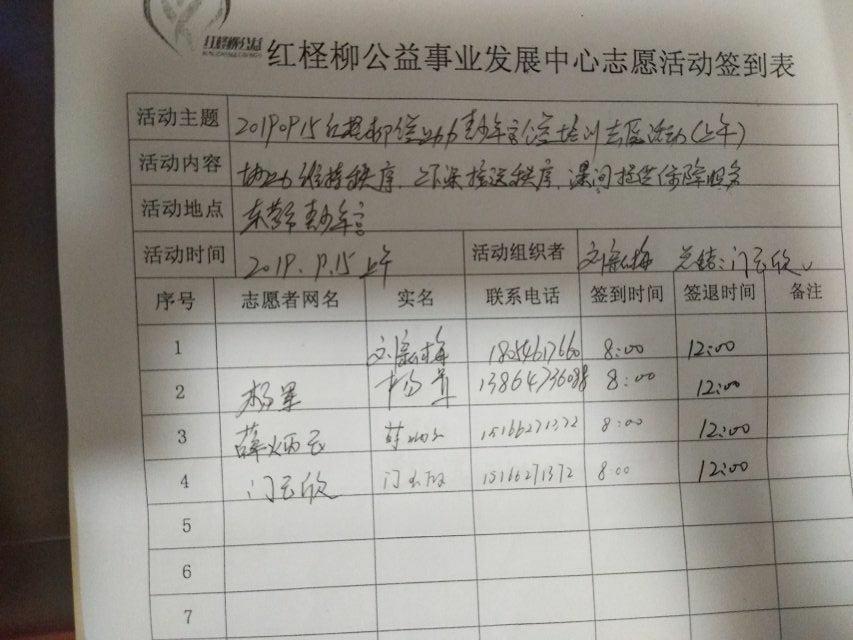 红柽柳公益
红柽柳公益事业发展中心志愿活动签到表
活动主题 20190915红柽柳协助青少年宫公益培训志愿活动(上午)
活动内容 协助维持秩序、上下课接送秩序、课间提供保障服务
活动地点 东营市青少年宫
活动时间 2019.9.15上午 活动组织者 刘新梅 总结:门云欣
序号 志愿者网名 实名 联系电话 签到时间 签退时间 备注
1 刘新梅 18054617660 8:00 12:00
2 杨军 杨军 13864736088 8:00 12:00
3 薛炳云 薛炳云 15166271372 8:00 12:00
4 门云欣 门云欣 15166271372 8:00 12:00
5
6
7